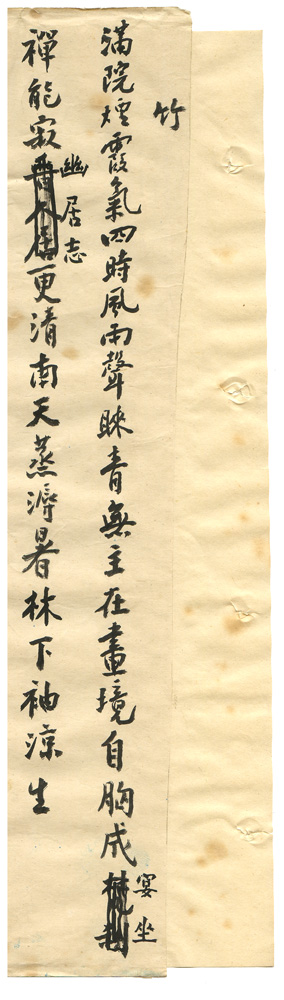 竹
滿院煙霞氣四時風雨聲睞青無主在畫境自胸成宴坐
禪能寂幽居志更清南天蒸溽暑林下袖涼生